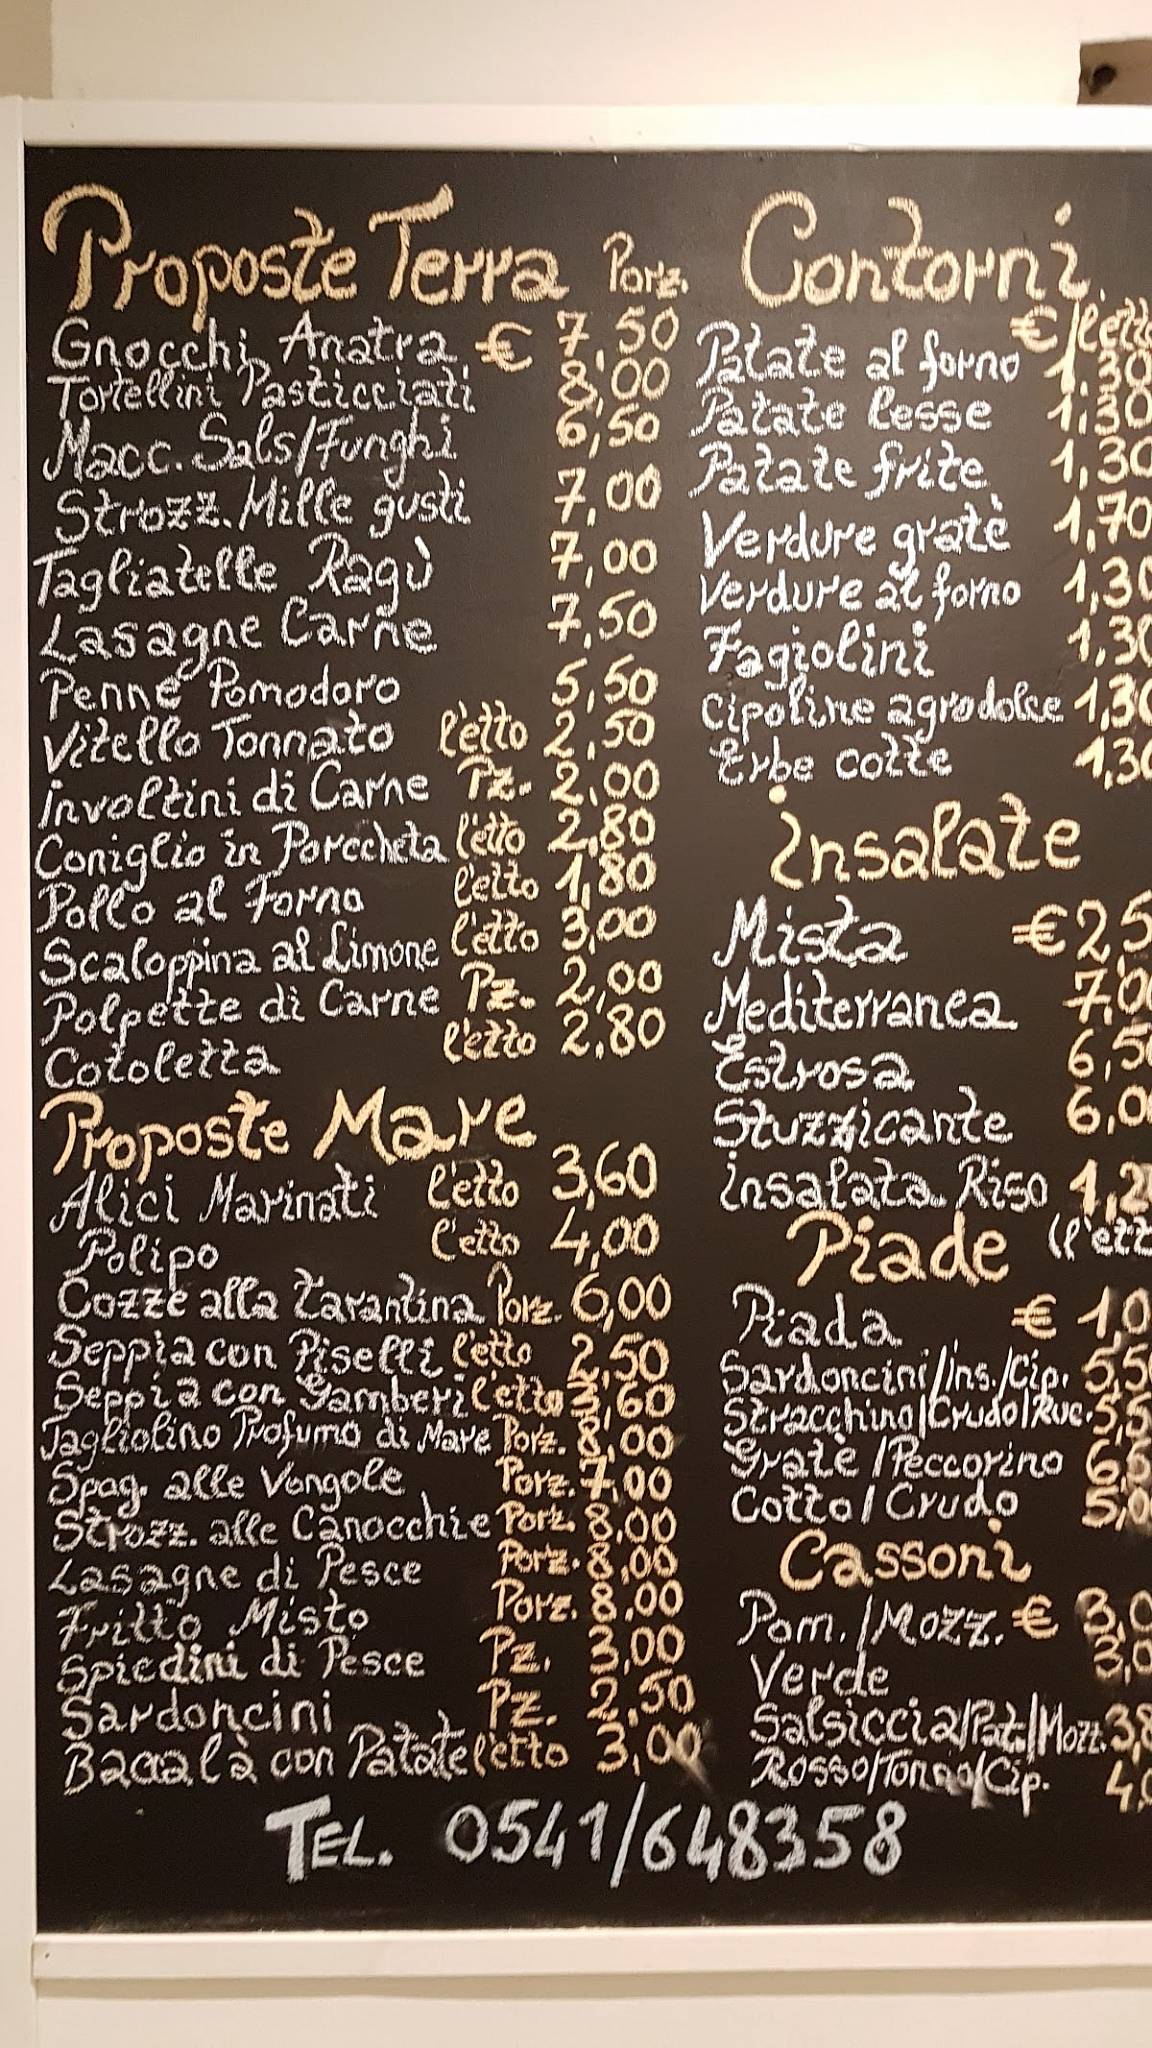 Proposte Terra Porz.
Gnocchi Anatra € 7,50
Tortellini Pasticciati 8,00
Macc. Sals/Funghi 6,50
Strozz. Mille gusti 7,00
Tagliatelle Ragù 7,00
Lasagne Carne 7,50
Penne Pomodoro 5,50
Vitello Tonnato l'etto 2,50
involtini di Carne Pz. 2,00
Coniglio in Porccheta l'etto 2,80
Pollo al Forno l'etto 1,80
Scaloppina al Limone l'etto 3,00
Polpette di Carne Pz. 2,00
Cotoletta l'etto 2,80
Proposte Mare
Alici Marinati l'etto 3,60
Polipo l'etto 4,00
Cozze alla Tarantina Porz. 6,00
Seppia con Piselli l'etto 2,50
Seppia con Gamberi l'etto 3,60
Tagliolino Profumo di Mare Porz. 8,00
Spag. alle Vongole Porz. 7,00
Strozz. alle Canocchie Porz. 8,00
Lasagne di Pesce Porz. 8,00
Fritto Misto Porz. 8,00
Spiedini di Pesce Pz. 3,00
Sardoncini Pz. 2,50
Bacalà con Patate l'etto 3,00
Contorni
€/l'etto
Patate al forno 1,30
Patate lesse 1,30
Patate frite 1,30
Verdure gratè 1,70
Verdure al forno 1,30
Fagiolini 1,30
Cipoline agrodolce 1,30
Erbe cotte 1,30
insalate
Mista € 2,5
Mediterranea 7,0
Estrosa 6,5
Stuzzicante 6,0
insalata Riso 1,2
(l'ett
Piade
Piada € 1,0
Sardoncini/ins./Cip. 5,5
Stracchino/Crudo/Ruc. 5,5
Gratè/Peccorino 6,5
Cotto/Crudo 5,0
Cassoni
Pom./Mozz. € 3,0
Verde 3,0
Salsiccia/Pat./Mozz. 3,8
Rosso/Tonno/Cip. 4,
TEL. 0541/648358